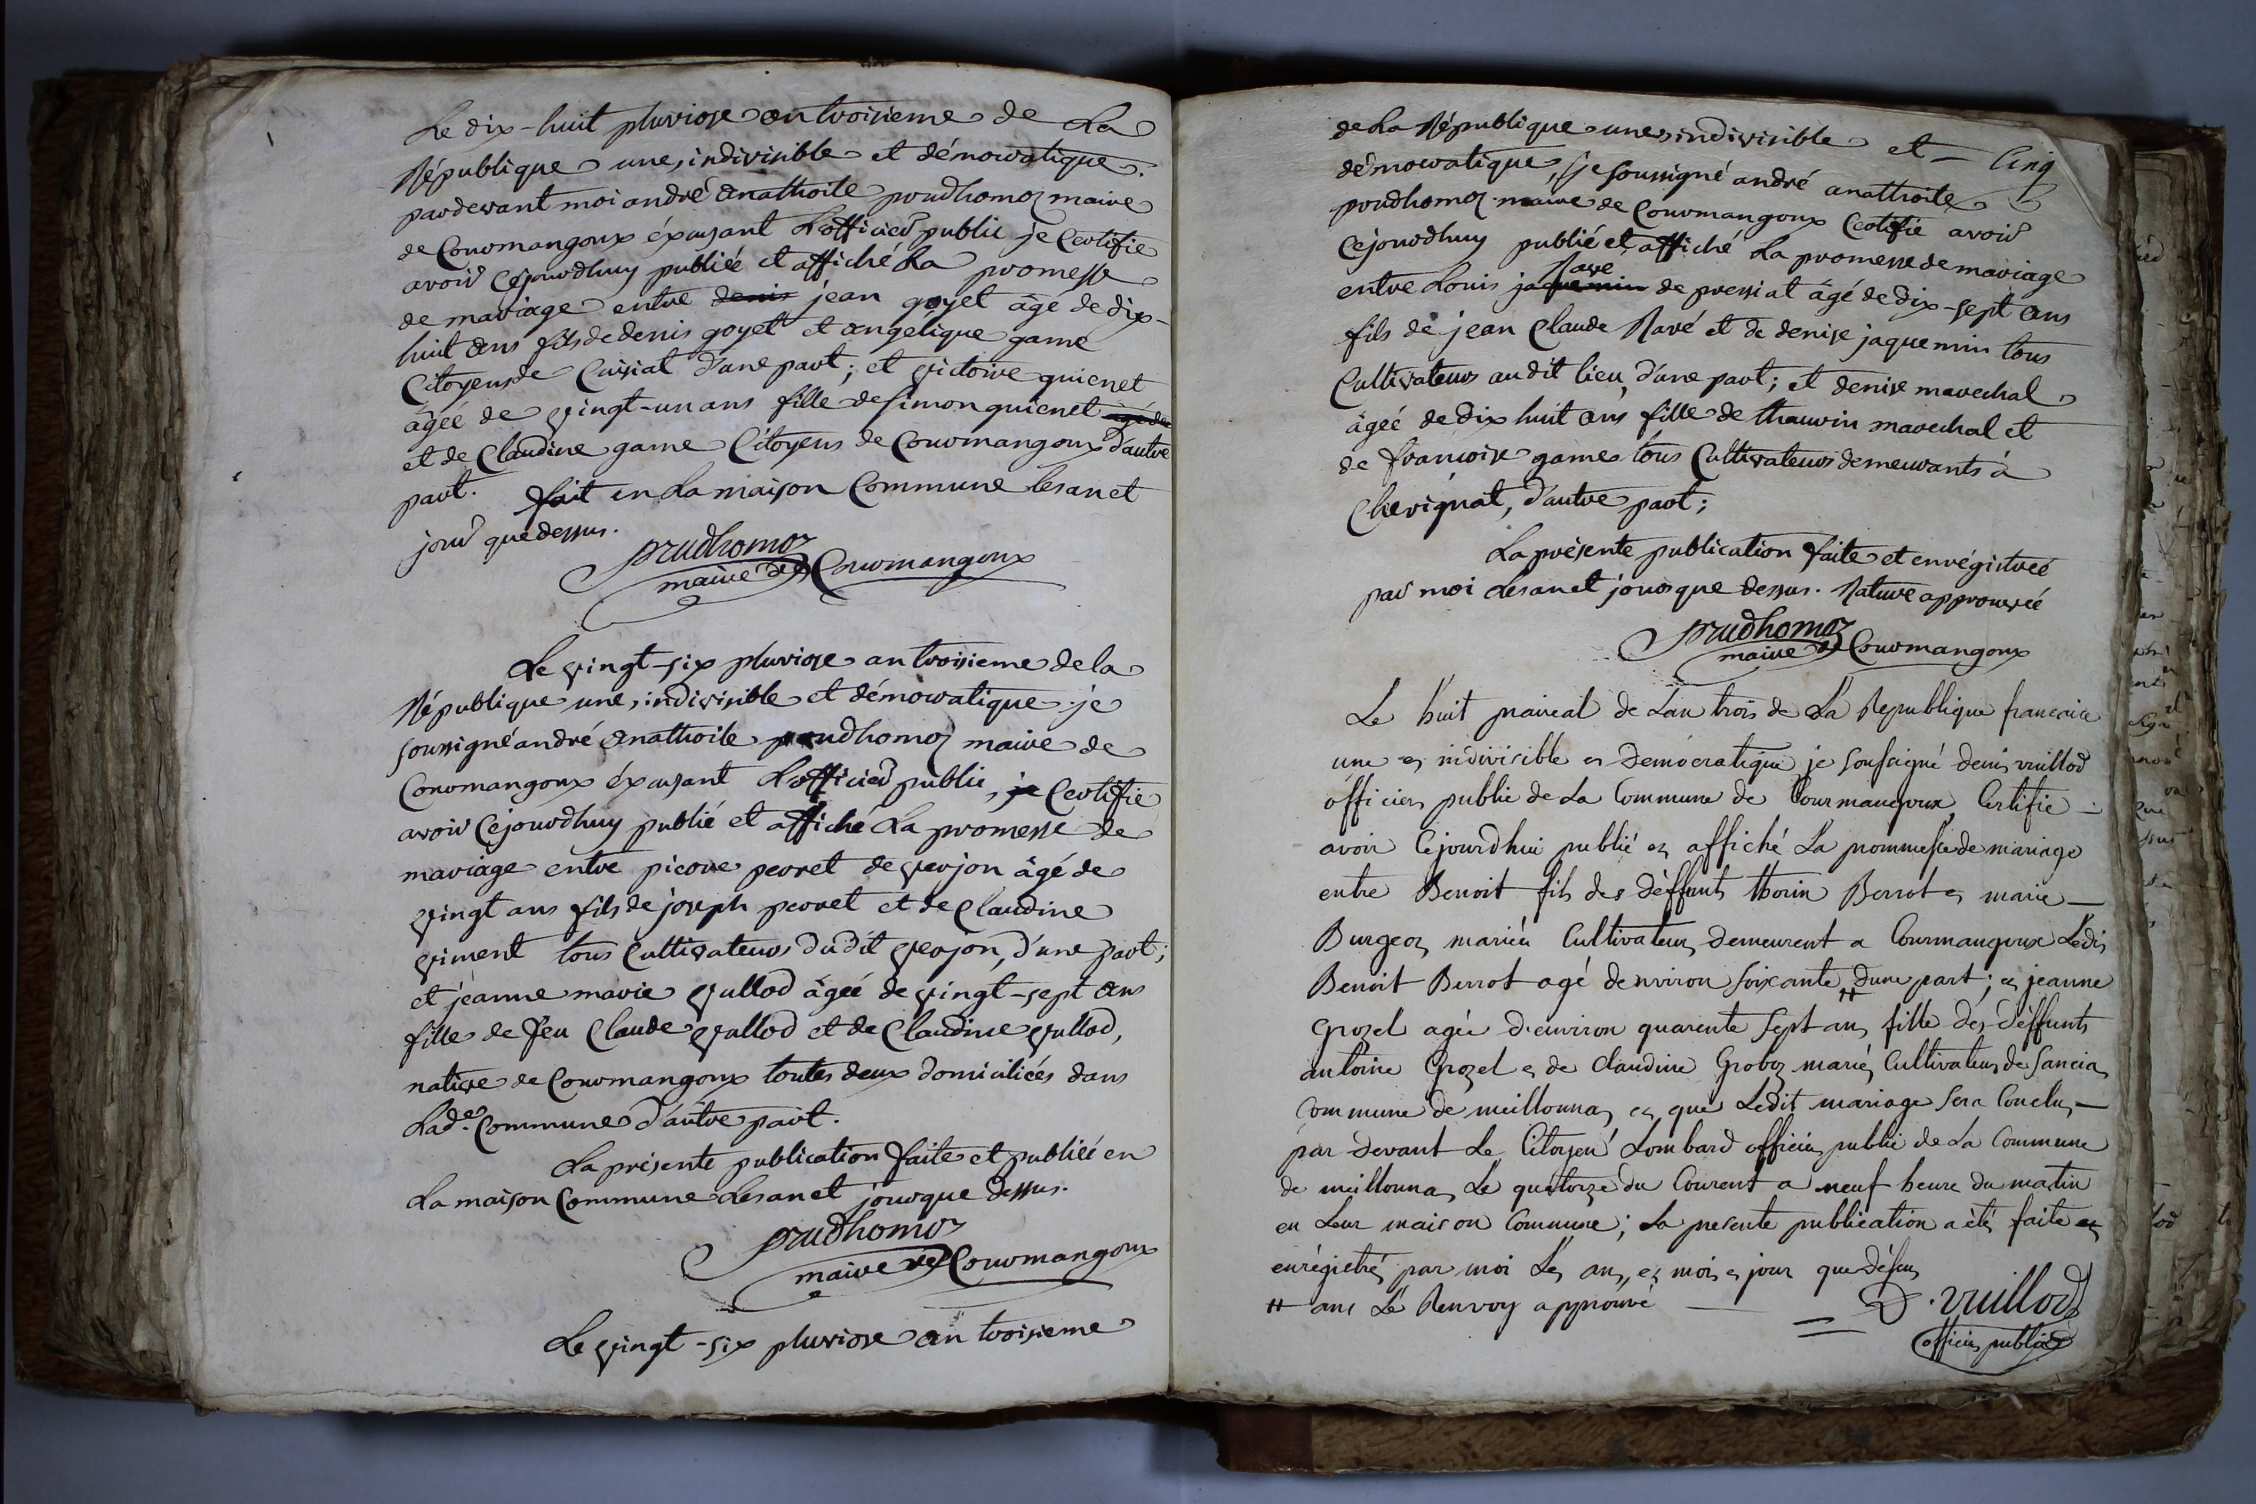 Le dix-huit pluviose an troisieme de La
République une, indivisible et démocratique.
pardevant moi andré anathoile prudhomoz maire
de Courmangoux éxerçant L'officier public je Certifie
avoir Cejourdhuy publiée et affiché La promesse
de mariage entre denis jean goyet âgé de dix-
huit ans fils de denis goyet et angélique game
Citoyens de Cuisiat d'une part; et victoire guienet
âgée de vingt-un ans fille de Simon guienet agé de
et de Claudine game Citoyens de Courmangoux d'autre
part. fait en La maison Commune les an et
jour que dessus.
prudhomoz
maire de Courmangoux
Le vingt-six pluviose an troisieme de la
République une, indivisible et démocratique. je
soussigné andré anathoile prudhomoz maire de
Courmangoux éxerçant L'officier public, je Certifie
avoir Cejourdhuy publié et affiché La promesse de
mariage entre pierre perret de verjon âgé de
vingt ans fils de joseph perret et de Claudine
viment tous Cultivateurs dudit verjon, d'une part;
et jeanne marie vullod âgée de vingt-sept ans
fille de feu Claude vullod et de Claudine vullod,
native de Courmangoux toutes deux domiciliées dans
Lad.e Commune d'autre part.
La présente publication faite et publiée en
La maison Commune Les an et jour que dessus.
prudhomoz
maire de Courmangoux
Le vingt-six pluviose an troisieme
de La République une, indivisible et
Cinq
démocratique, je soussigné andré anathoile
prudhomoz maire de Courmangoux Certifie avoir
Cejourdhuy publié et affiché La promesse de mariage
Ravé
entre Louis jaquemin de pressiat âgé de dix-sept ans
fils de jean Claude Ravé et de denise jaquemin tous
Cultivateurs audit lieu d'une part; et denise marechal
âgée de dix huit ans fille de thauvin marechal et
de francoise game tous Cultivateurs demeurants à
Chevignat, d'autre part;
La présente publication faite et enrégistreé
par moi Les an et jour que dessus. Rature approuvée
prudhomoz
maire de Courmangoux
Le huit prairéal de Lan trois de La Republique francaice
une et indivicible et Democratique je soussigné denis vuillod
officier public de La Commune de Courmangoux Certifie
avoir Cejourdhui publié et affiché La prommesse de mariage
entre Benoit fils des deffunts thorin Berrot et marie
Burgeoz mariés Cultivateurs demeurent a Courmangoux Ledis
Benoit Berrot agé denviron soixante ++ dune part; et jeanne
grozel agée d'environ quarente sept ans fille des deffunts
antoine Grozel et de claudine Groboz mariés Cultivateurs de Sancia
Commune de meillonna, et que Ledit mariage sera Conclu,
par devant Le Citoyen Lombard officier public de La Commune
de meillonna, Le quatorze du Courent a neuf heure du matin
en Leur maison Commune; La presente publication a été faite et
enrégistré par moi Les an, et mois et jour que dessus
++ ans Le Renvoy approuvé
D. vuillod
officier public